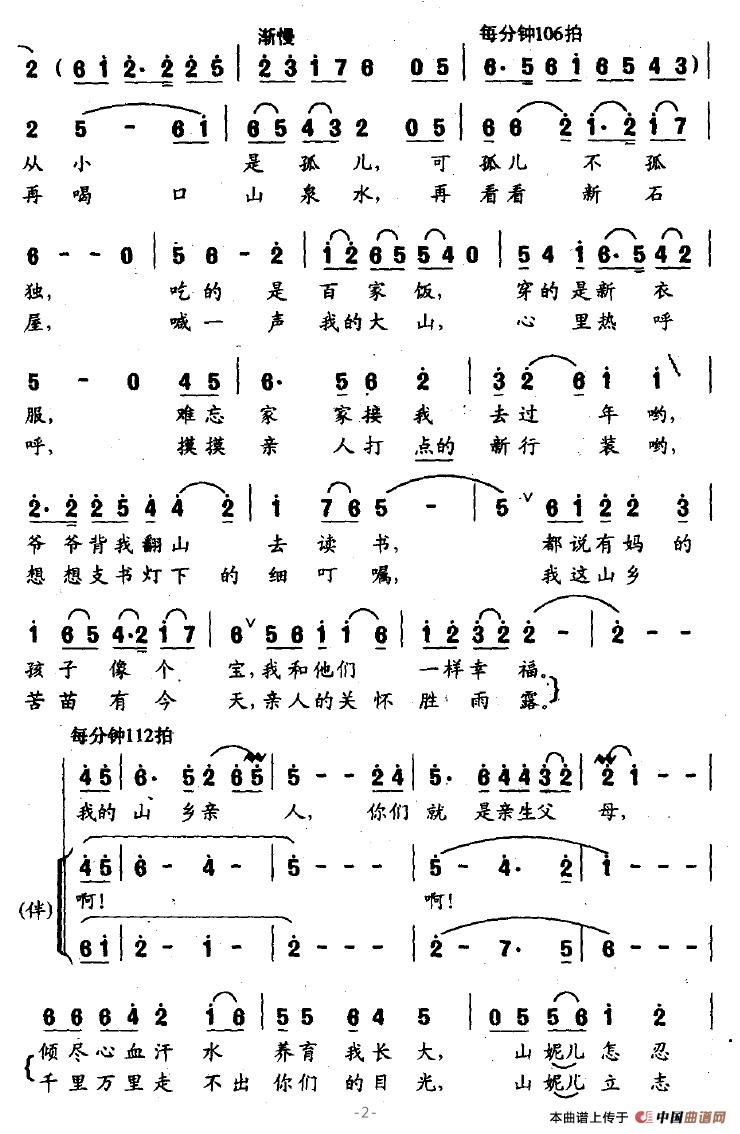 渐慢 每分钟106拍
2 ( 6 1 2· 2 2 5 | 2 3 1 7 6 0 5 | 6· 5 6 1 6 5 4 3 ) |
2 5 - 6 1 | 6 5 4 3 2 0 5 | 6 6 2 1· 2 1 7 |
从小 是孤儿,可孤儿不孤
再喝 口山泉水,再看看新石
6 - - 0 | 5 6 - 2 | 1 2 6 5 5 5 4 0 | 5 4 1 6· 5 4 2 |
独, 吃的是百家饭, 穿的是新衣
屋, 喊一声我的大山, 心里热呼
5 - 0 4 5 | 6· 5 6 2 | 3 2 6 1 1 |
服, 难忘家家接我去过年哟,
呼, 摸摸亲人打点的新行装哟,
2· 2 2 5 4 4 2 | 1 7 6 5 - | 5 ∨ 6 1 2 2 3 |
爷爷背我翻山去读书, 都说有妈的
想想支书灯下的细叮嘱, 我这山乡
1 6 5 4· 2 1 7 | 6 ∨ 5 6 1 1 6 | 1 2 3 2 2 - | 2 - - |
孩子像个宝,我和他们一样幸福。
苦苗有今天,亲人的关怀胜雨露。
每分钟112拍
4 5 | 6· 5 2 6 5 | 5 - - 2 4 | 5· 6 4 4 3 2 | 2 1 - - |
我的山乡亲人, 你们就是亲生父母,
4 5 | 6 - 4 - | 5 - - - | 5 - 4· 2 | 1 - - - |
(伴) 啊! 啊!
6 1 | 2 - 1 - | 2 - - - | 2 - 7· 5 | 6 - - - |
6 6 6 4 2 1 6 | 5 5 6 4 5 | 0 5 5 6 1 2 |
倾尽心血汗水养育我长大, 山妮儿怎忍
千里万里走不出你们的目光, 山妮儿立志
-2-
本曲谱上传于 中国曲谱网